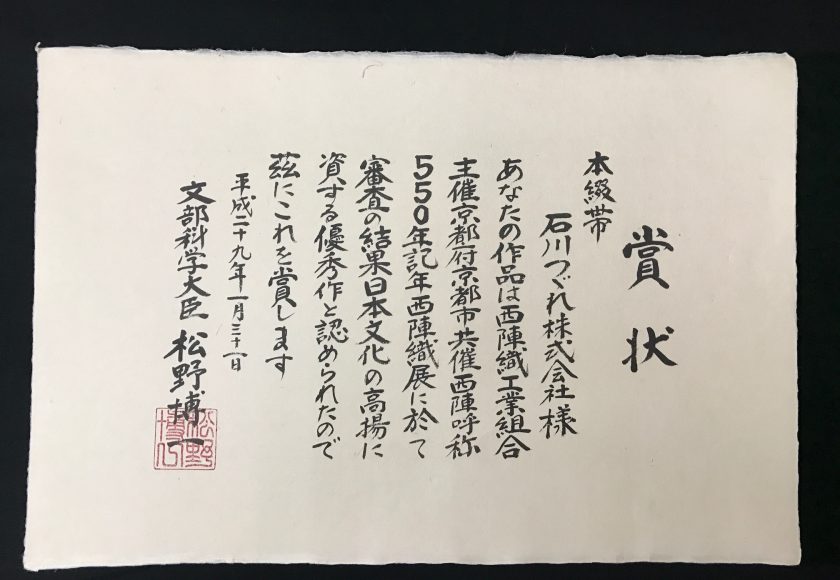 賞状
本綴帯
石川つづれ株式会社様
あなたの作品は西陣織工業組合
主催京都府京都市共催西陣呼称
550年記年西陣織展に於て
審査の結果日本文化の高揚に
資する優秀作と認められたので
茲にこれを賞します
平成二十九年一月三十一日
文部科学大臣 松野博一
松野博一